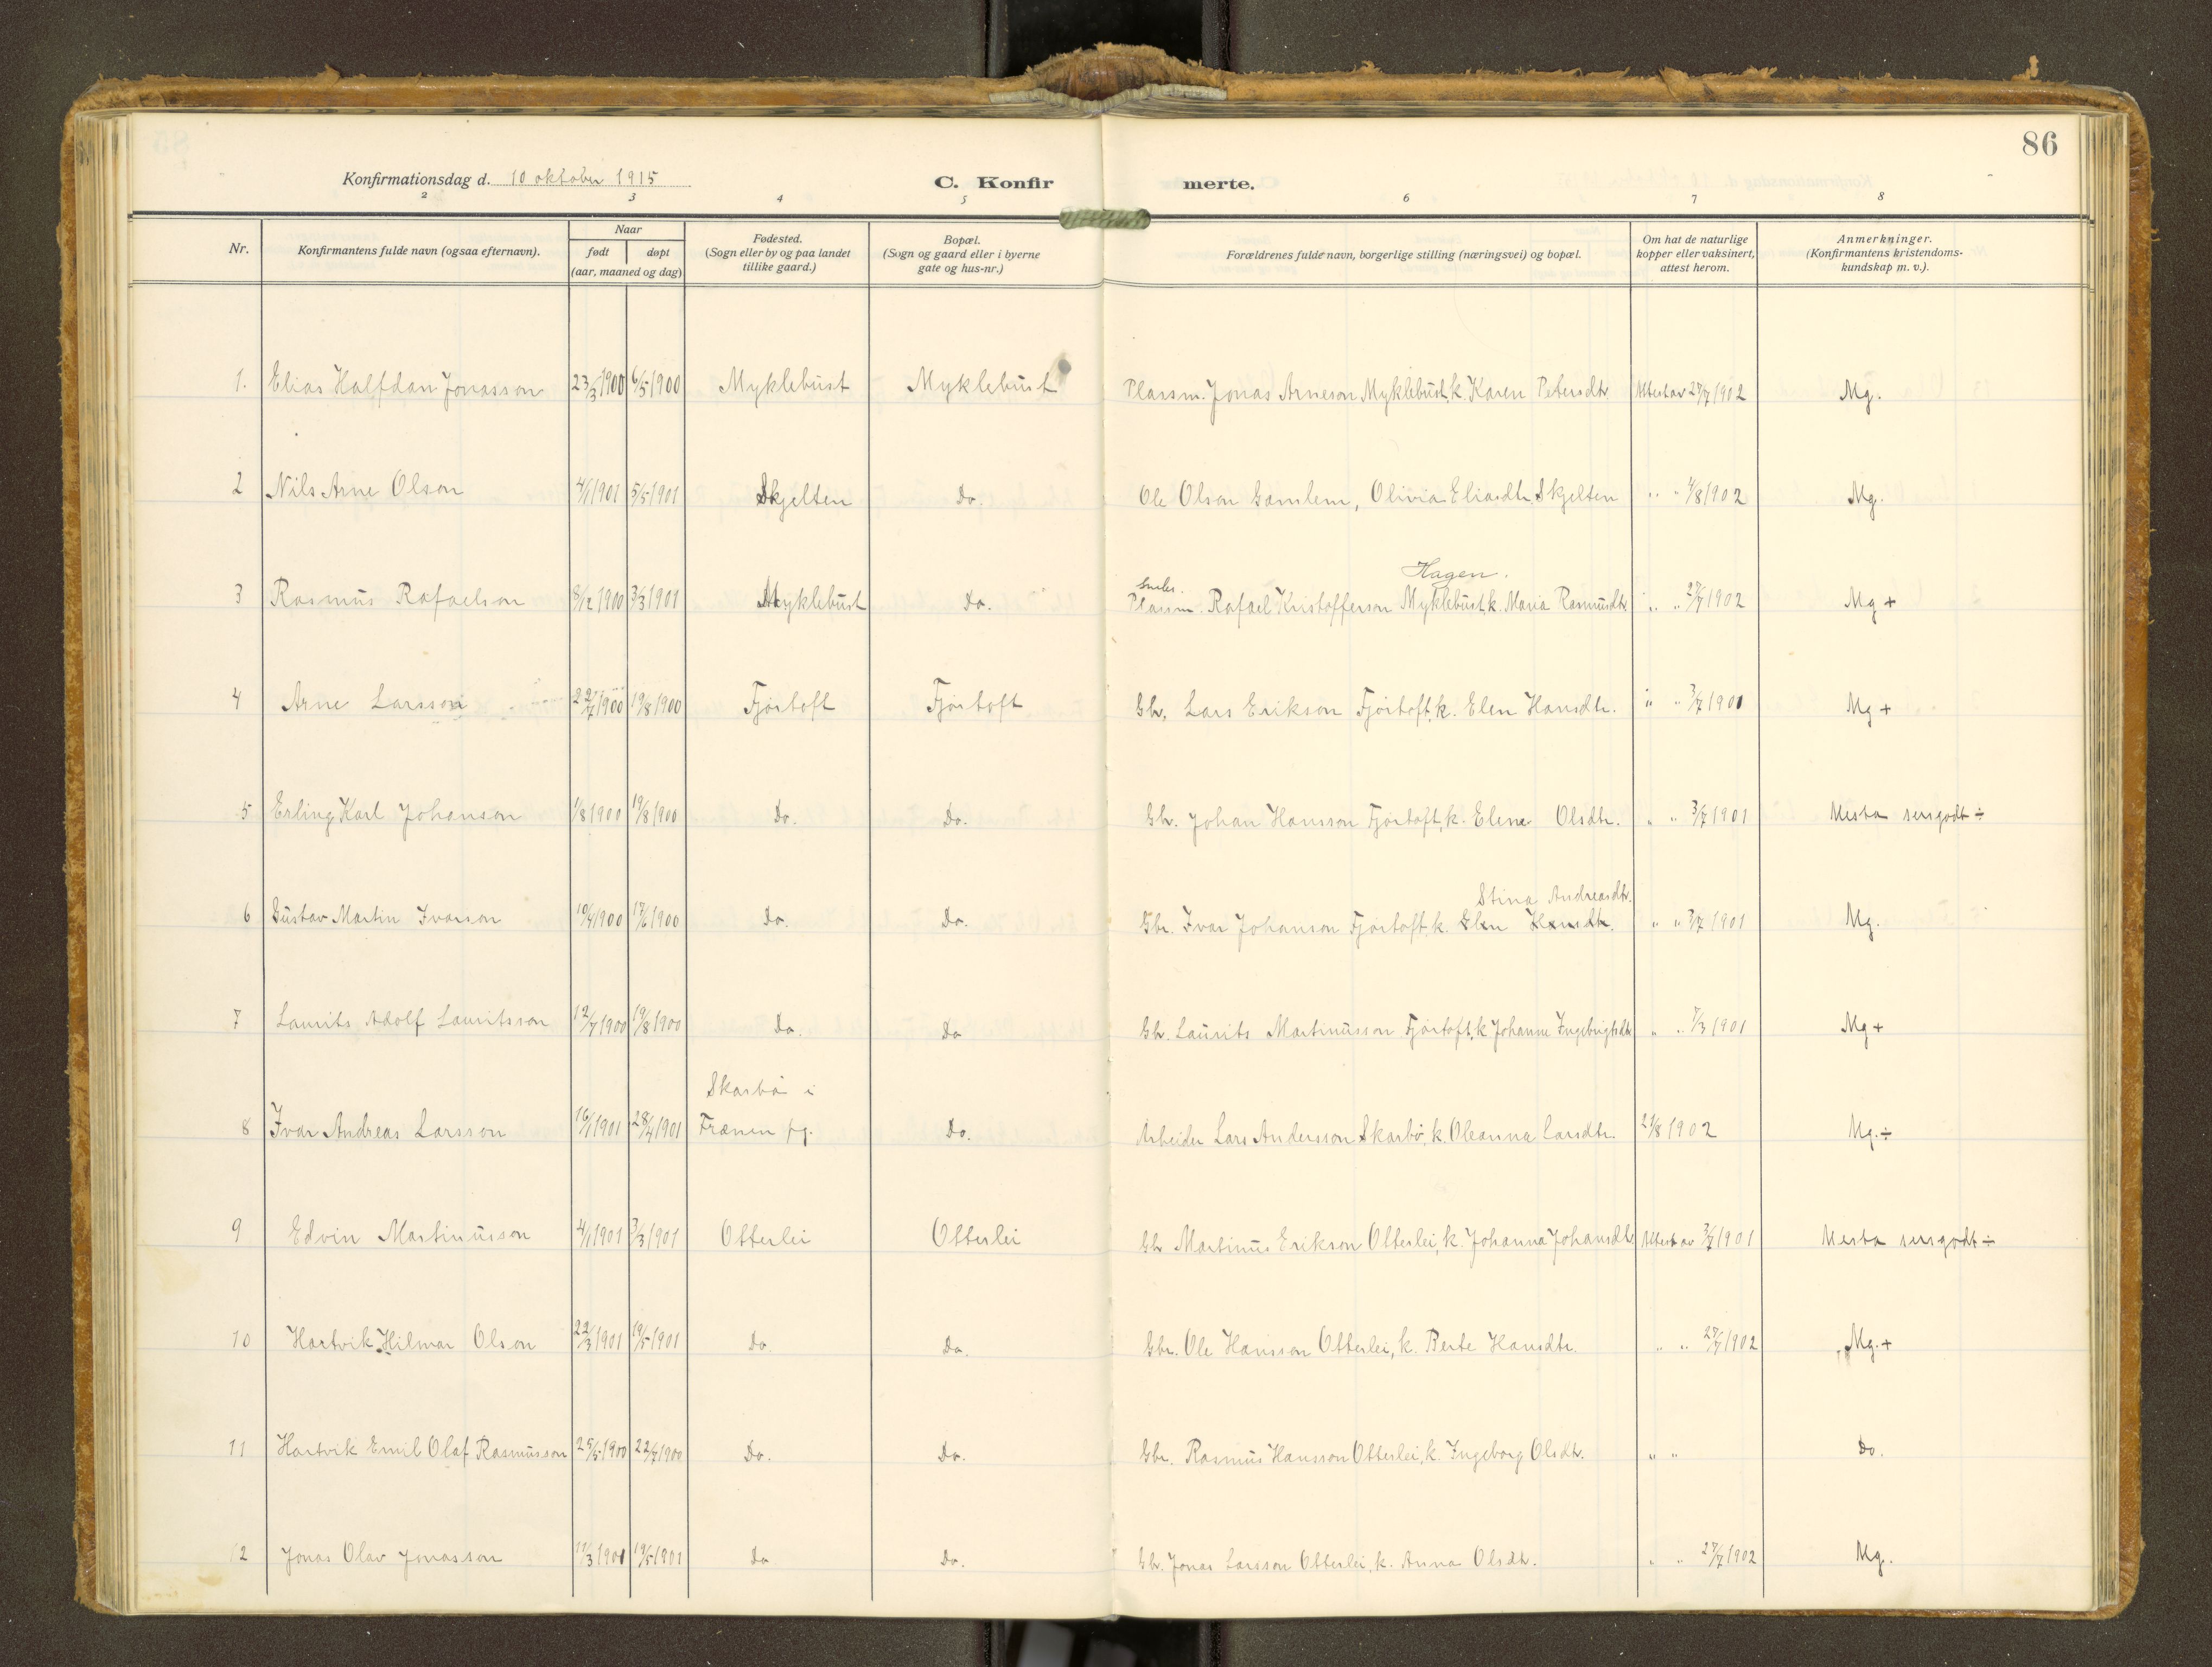 86
Konfirmationsdag d. 10 oktober 1915
C. Konfirmerte.
2 3 4 5 6 7 8
Nr. Konfirmantens fulde navn (ogsaa efternavn). Naar født døpt (aar, maaned og dag) Fødested. (Sogn eller by og paa landet tillike gaard.) Bopæl. (Sogn og gaard eller i byerne gate og hus-nr.) Forældrenes fulde navn, borgerlige stilling (næringsvei) og bopæl. Om hat de naturlige kopper eller vaksinert, attest herom. Anmerkninger. (Konfirmantens kristendoms-kundskap m. v.).
1. Elias Halfdan Jonasson 23/3 1900 6/5 1900 Myklebust Myklebust Plassm. Jonas Arneson Myklebust, k. Karen Petersdtr Attest av 27/7 1902 Mg.
2 Nils Arne Olson 4/1 1901 5/5 1901 Skjelten Do. Ole Olson Gamlem, Olivia Eliasdtr. Skjelten " " 4/8 1902 Mg.
Hagen.
3 Rasmus Rafaelson 8/12 1900 3/3 1901 Myklebust Do. Plassm. Rafael Kristofferson Myklebust, k. Maria Rasmusdtr " " 27/7 1902 Mg +
4 Arne Larsson 22/7 1900 19/8 1900 Fjørtoft Fjørtoft Gbr. Lars Erikson Fjørtoft, k. Elen Hansdtr. " " 3/7 1901 Mg +
5 Erling Karl Johanson 1/8 1900 19/8 1900 Do. Do. Gbr. Johan Hansson Fjørtoft, k. Elene Olsdtr. " " 3/7 1901 Mesta sersgodt ÷
Stina Andreasdtr.
6 Gustav Martin Ivarson 10/4 1900 17/6 1900 Do. Do. Gbr. Ivar Johanson Fjørtoft, k. Elen Hansdtr. " " 3/7 1901 Mg.
7 Laurits Adolf Lauritsson 12/7 1900 19/8 1900 Do. Do Gbr. Laurits Martinusson Fjørtoft, k Johanne Ingebrigtsdtr " " 7/3 1901 Mg +
Skarbø i
8 Ivar Andreas Larsson 16/1 1901 28/4 1901 Frænen pg. Do. Arbeider Lars Andersson Skarbø, k. Oleanna Larsdtr. 21/8 1902 Mg. ÷
9 Edvin Martinusson 4/1 1901 3/3 1901 Otterlei Otterlei Gbr Martinus Erikson Otterlei, k. Johanna Johansdtr Attest av 3/7 1901 Mesta sersgodt ÷
10 Hartvik Hilmar Olson 22/3 1901 19/5 1901 do. Do. Gbr. Ole Hansson Otterlei, k. Berte Hansdtr. " " 27/7 1902 Mg. +
11 Hartvik Emil Olaf Rasmusson 25/5 1900 22/7 1900 Do. Do. Gbr. Rasmus Hansson Otterlei, k. Ingeborg Olsdtr. " " Do.
12 Jonas Olav Jonasson 11/3 1901 19/5 1901 do Do. Gbr. Jonas Larsson Otterlei, k. Anna Olsdtr. " " 27/7 1902 Mg.